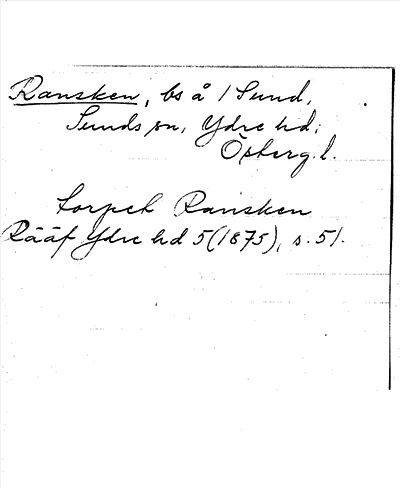 Ransken, bs å 1 Sund,
Sunds sn, Ydre hd,
Österg. l.
torpet Ransken
Rääf Ydre hd 5 (1875), s. 51.